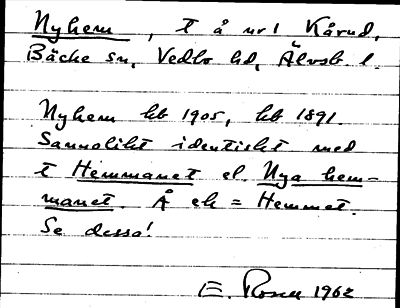 Nyhem, t å nr 1 Kårud,
Bäcke sn, Vedbo hd, Älvsb. l.
Nyhem kb 1905, kb 1891.
Sannolikt identiskt med
t Hemmanet el. Nya hem-
manet. Å ek = Hemmet.
Se dessa!
E. Rosen 1962